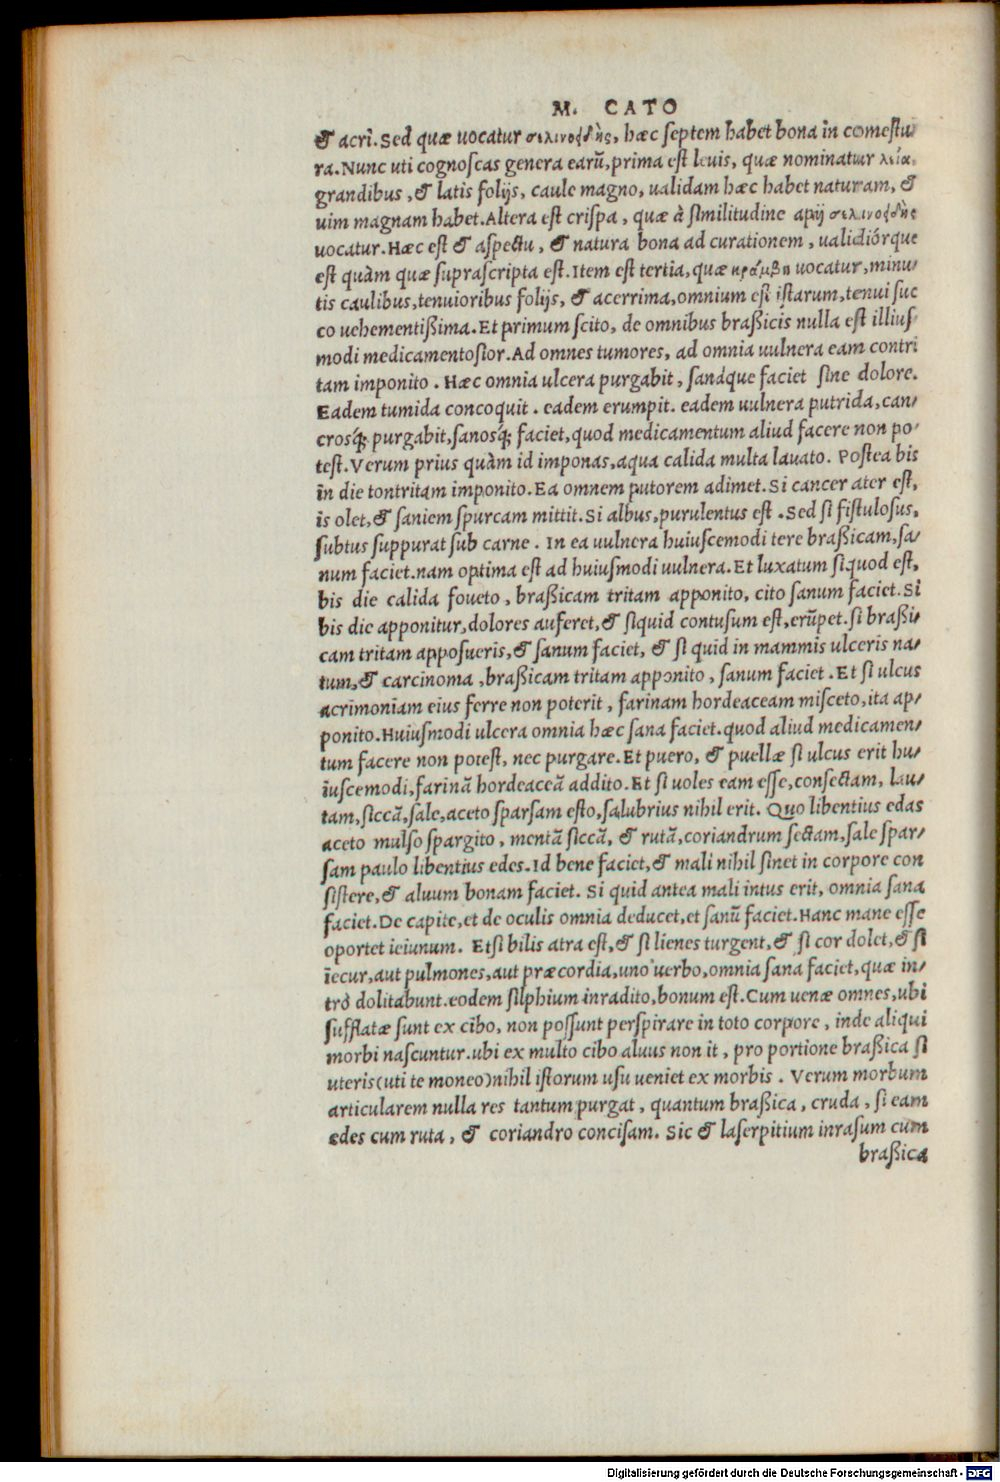 M. CATO
& acri. Sed quæ uocatur σελινοειδὴς, hæc septem habet bona in comestu/
ra. Nunc uti cognoscas genera earũ, prima est leuis, quæ nominatur λεία,
grandibus, & latis folijs, caule magno, ualidam hæc habet naturam, &
uim magnam habet. Altera est crispa, quæ à similitudine apij σελινοειδὴς
uocatur. Hæc est & aspectu, & natura bona ad curationem, ualidiórque
est quàm quæ suprascripta est. Item est tertia, quæ κράμβη uocatur, minu/
tis caulibus, tenuioribus folijs, & acerrima, omnium est istarum, tenui suc
co uehementißima. Et primum scito, de omnibus braßicis nulla est illius/
modi medicamentosior. Ad omnes tumores, ad omnia uulnera eam contri
tam imponito. Hæc omnia ulcera purgabit, sanáque faciet sine dolore.
Eadem tumida concoquit. eadem erumpit. eadem uulnera putrida, can/
crosq́; purgabit, sanosq́; faciet, quod medicamentum aliud facere non po/
test. Verum prius quàm id imponas, aqua calida multa lauato. Postea bis
in die tontritam imponito. Ea omnem putorem adimet. Si cancer ater est,
is olet, & saniem spurcam mittit. Si albus, purulentus est. Sed si fistulosus,
subtus suppurat sub carne. In ea uulnera huiuscemodi tere braßicam, sa/
num faciet. nam optima est ad huiusmodi uulnera. Et luxatum siquod est,
bis die calida foueto, braßicam tritam apponito, cito sanum faciet. Si
bis die apponitur, dolores auferet, & siquid contusum est, erũpet. si braßi/
cam tritam apposueris, & sanum faciet, & si quid in mammis ulceris na/
tum, & carcinoma, braßicam tritam apponito, sanum faciet. Et si ulcus
acrimoniam eius ferre non poterit, farinam hordeaceam misceto, ita ap/
ponito. Huiusmodi ulcera omnia hæc sana faciet. quod aliud medicamen/
tum facere non potest, nec purgare. Et puero, & puellæ si ulcus erit hu/
iuscemodi, farinã hordeaceã addito. Et si uoles eam esse, consectam, lau/
tam, siccã, sale, aceto sparsam esto, salubrius nihil erit. Quo libentius edas
aceto mulso spargito, mentã siccã, & rutã, coriandrum sectam, sale spar/
sam paulo libentius edes. Id bene faciet, & mali nihil sinet in corpore con
sistere, & aluum bonam faciet. Si quid antea mali intus erit, omnia sana
faciet. De capite, et de oculis omnia deducet, et sanũ faciet. Hanc mane esse
oportet ieiunum. Etsi bilis atra est, & si lienes turgent, & si cor dolet, & si
iecur, aut pulmones, aut præcordia, uno uerbo, omnia sana faciet, quæ in/
trò dolitabunt. eodem silphium inradito, bonum est. Cum uenæ omnes, ubi
sufflatæ sunt ex cibo, non possunt perspirare in toto corpore, inde aliqui
morbi nascuntur. ubi ex multo cibo aluus non it, pro portione braßica si
uteris (uti te moneo) nihil istorum usu ueniet ex morbis. Verum morbum
articularem nulla res tantum purgat, quantum braßica, cruda, si eam
edes cum ruta, & coriandro concisam. Sic & laserpitium inrasum cum
braßica
Digitalisierung gefördert durch die Deutsche Forschungsgemeinschaft - DFG